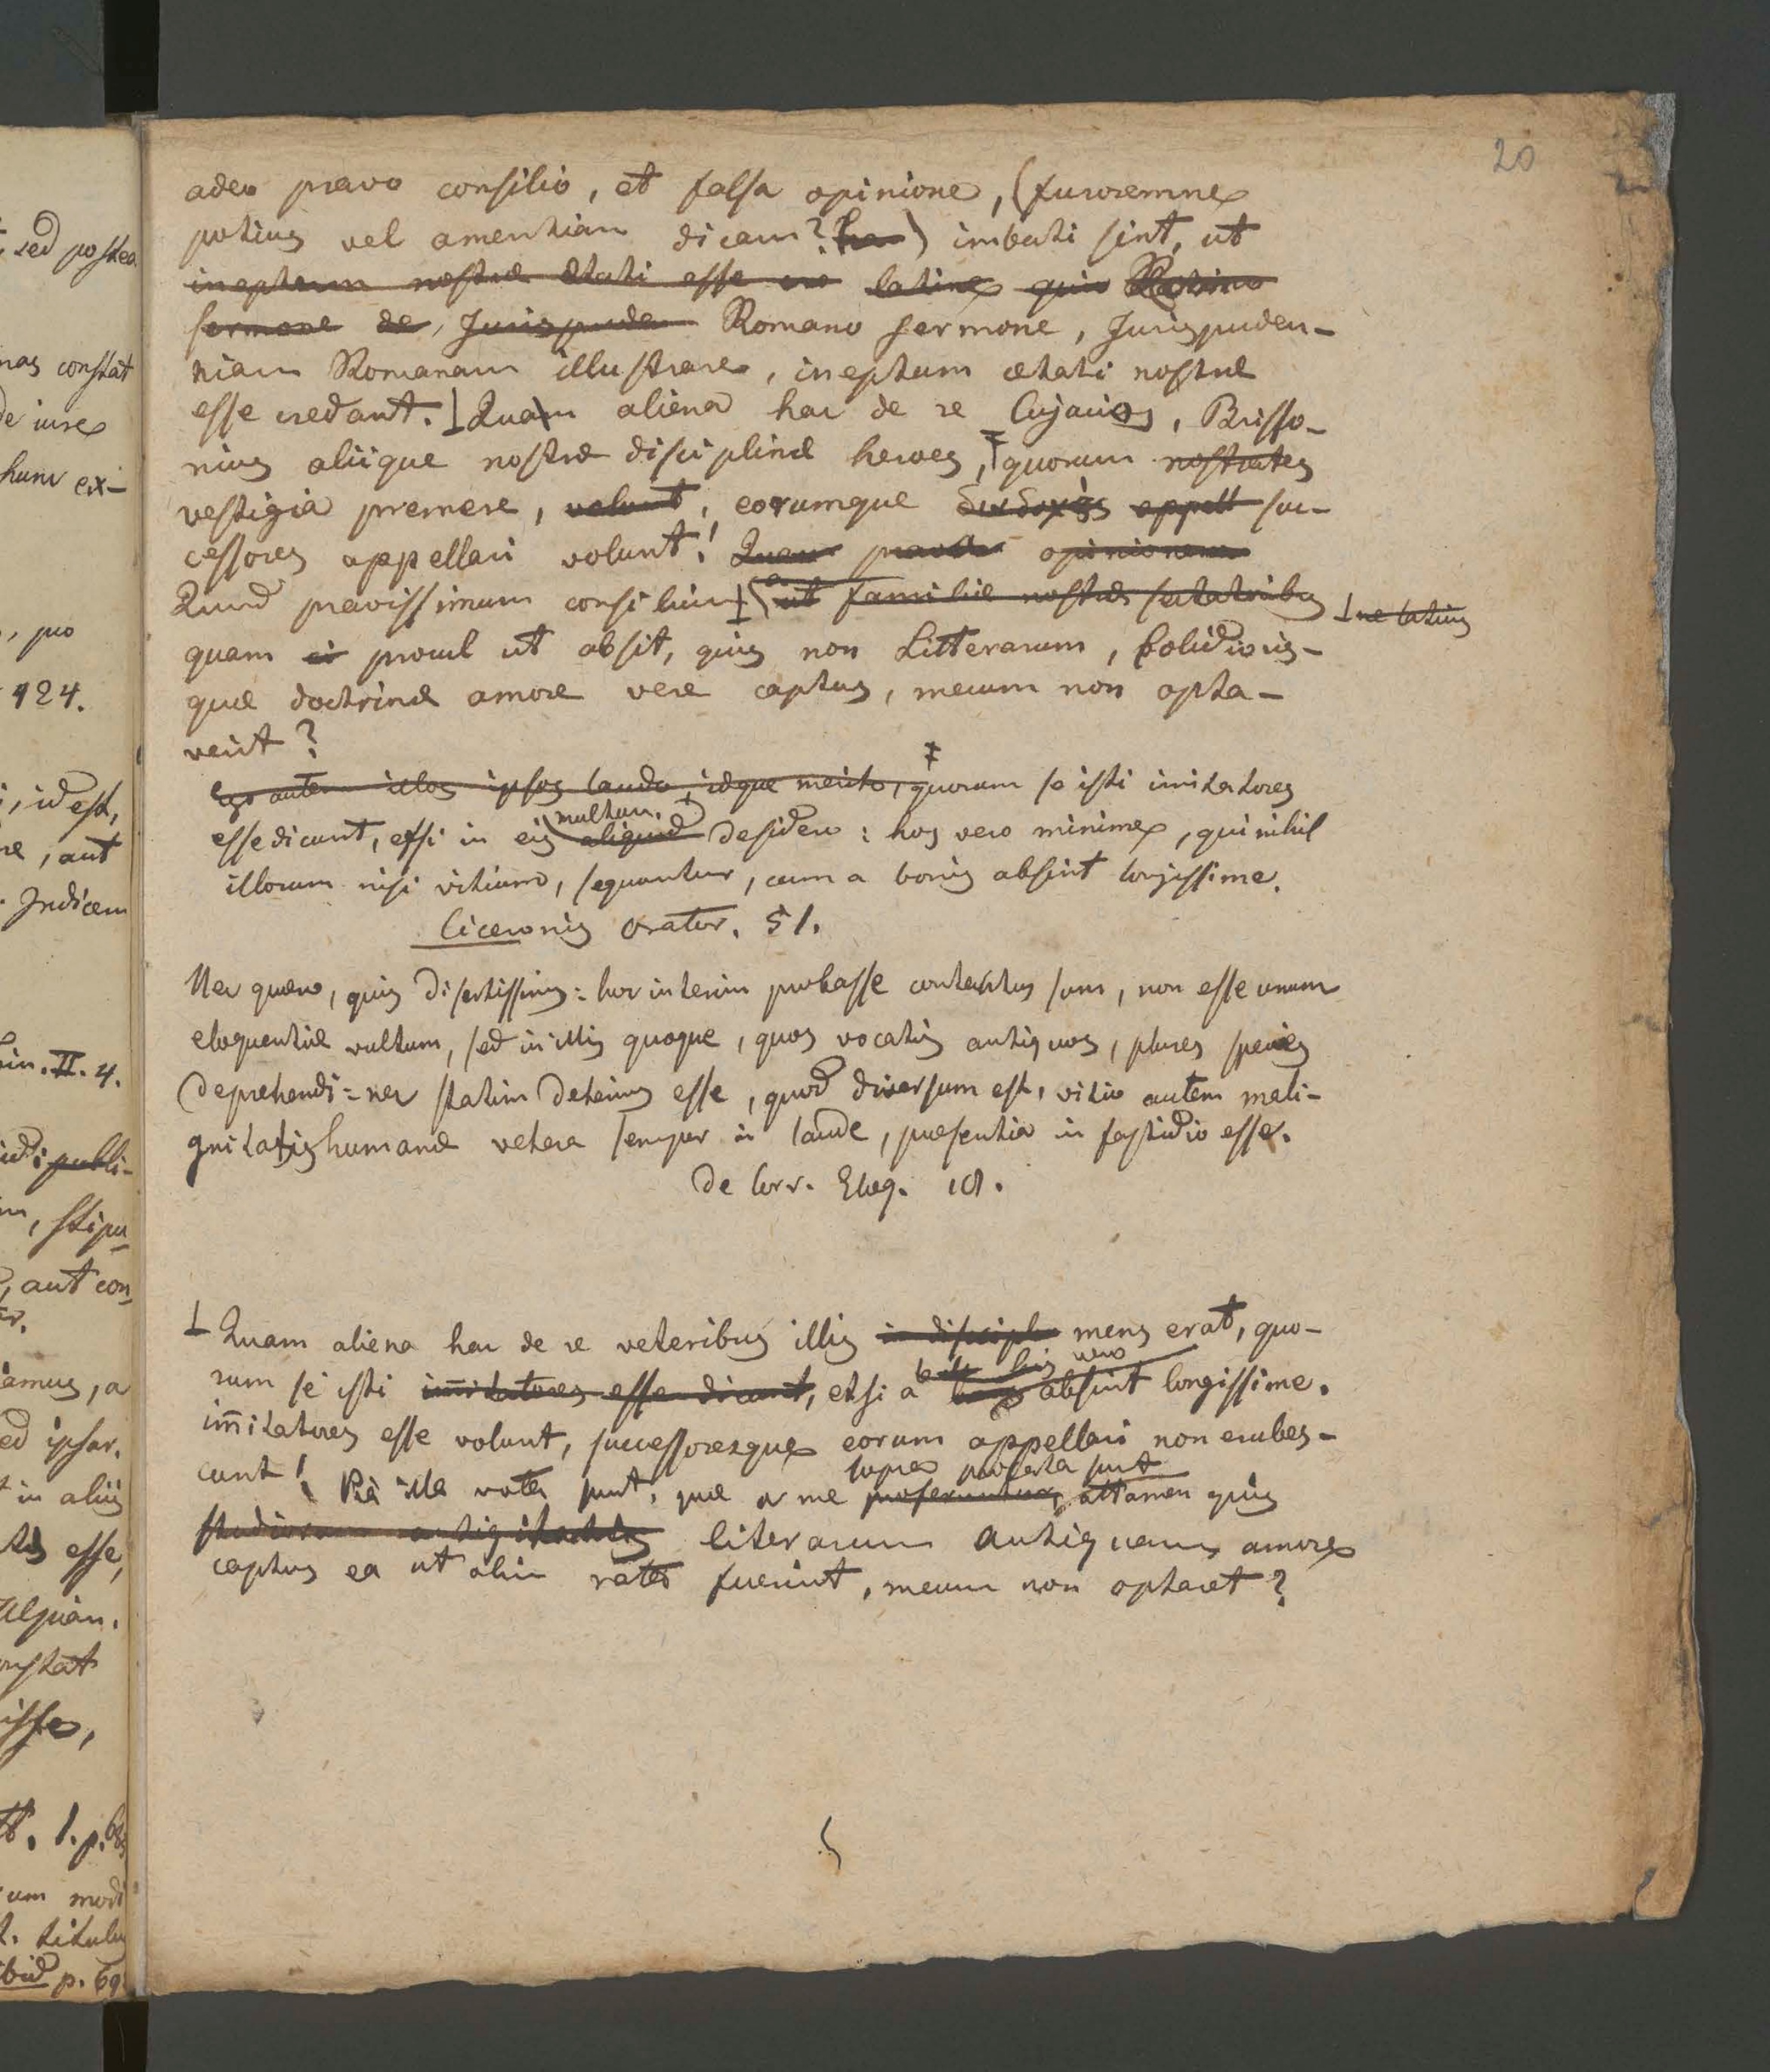 20
adeo pravo consilio, et falsa opinione, (furoremne
potius vel amentiam dicam?) imbuti sint, ut
ineptum nostræ ætati esse latine quin
sermone de Jurispruden Romano sermone, Jurispruden-
tiam Romanam illustrare, ineptum ætati nostræ
esse credant. ⊥ Quam aliena hac de re Cujacius, Brisso-
nius aliique nostræ disciplinæ heroes, ‡ quorum nostrates
vestigia premere, volunt, eorumque appell suc-
cessores appellari volunt! Quam pravam opinionem
Quod pravissimum consilium ⊥ ut familiæ nostræ sectatoribus ⊥ ne latius
quam procul ut absit, quis non Litterarum, solidioris-
quæ doctrinæ amore vere captus, mecum non opta-
verit?
Ego autem illos ipsos laudo, idque merito, ‡ quorum se isti imitatores
esse dicunt, etsi in eis multum aliquid desidero: hos vero minime, qui nihil
illorum nisi vitium, sequantur, cum a bonis absint longissime.
Ciceronis Orator. 51.
Nec quæro, quis disertissimus: hoc interim probasse contentus sum, non esse unum
eloquentiæ vultum, sed in illis quoque, quos vocatis antiquos, plures species
deprehendi: nec statim deterius esse, quod diversum est, vitio autem mali-
gnitatis humanæ vetera semper in laude, præsentia in fastidio esse.
De Corr. Eloq. 18.
⊥ Quam aliena hac de re veteribus illis in discipl mens erat, quo-
rum se isti imitatores esse dicunt, etsi a his vero absint longissime.
imitatores esse volunt, successoresque eorum appellari non erubes-
cunt! Pia illa vota sunt, quæ a me supra proferuntur, attamen quis
literarum antiquarum amore
captus ea ut olim rata fuerint, mecum non optaret?
sed postea
nas constat
de iure
hunc ex-
, pro
424.
, id est,
re, aut
Indicem
in. II. 4.
publi-
, stipu-
, aut con-
amus, a
ed ipsar.
in aliis
esse,
Ulpian.
onstat
isse,
tt. 1. p. 68
um modi
t. titulu
ibid p. 69